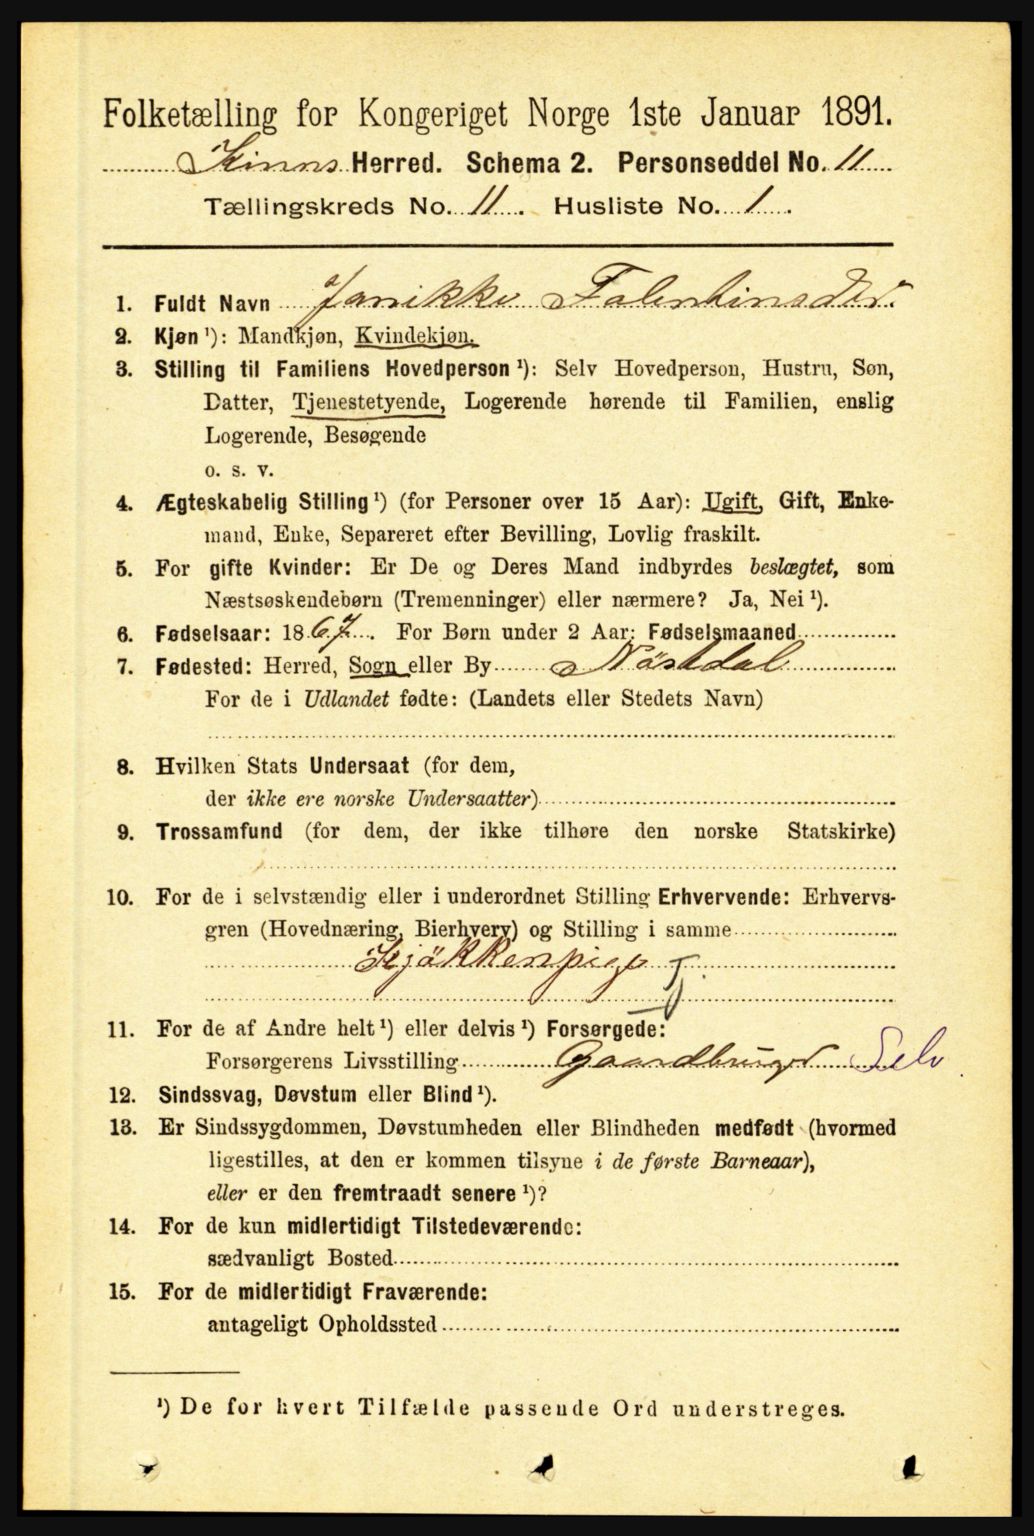 Folketælling for Kongeriget Norge 1ste Januar 1891.
Kinns Herred. Schema 2. Personseddel No. 11
Tællingskreds No. 11. Husliste No. 1.
1. Fuldt Navn Janikke Falentinsdtr.
2. Kjøn ¹): Mandkjøn, Kvindekjøn.
3. Stilling til Familiens Hovedperson ¹): Selv Hovedperson, Hustru, Søn,
Datter, Tjenestetyende, Logerende hørende til Familien, enslig
Logerende, Besøgende
o. s. v.
4. Ægteskabelig Stilling ¹) (for Personer over 15 Aar): Ugift, Gift, Enke-
mand, Enke, Separeret efter Bevilling, Lovlig fraskilt.
5. For gifte Kvinder: Er De og Deres Mand indbyrdes beslægtet, som
Næstsøskendebørn (Tremenninger) eller nærmere? Ja, Nei ¹).
6. Fødselsaar: 1867. For Børn under 2 Aar: Fødselsmaaned
7. Fødested: Herred, Sogn eller By Nöstdal
For de i Udlandet fødte: (Landets eller Stedets Navn)
8. Hvilken Stats Undersaat (for dem,
der ikke ere norske Undersaatter)
9. Trossamfund (for dem, der ikke tilhøre den norske Statskirke)
10. For de i selvstændig eller i underordnet Stilling Erhvervende: Erhvervs-
gren (Hovednæring, Bierhverv) og Stilling i samme
Kjökkenpige Tj.
11. For de af Andre helt ¹) eller delvis ¹) Forsørgede:
Forsørgerens Livsstilling Gaardbruger Selv
12. Sindssvag, Døvstum eller Blind ¹).
13. Er Sindssygdommen, Døvstumheden eller Blindheden medfødt (hvormed
ligestilles, at den er kommen tilsyne i de første Barneaar),
eller er den fremtraadt senere ¹)?
14. For de kun midlertidigt Tilstedeværende:
sædvanligt Bosted
15. For de midlertidigt Fraværende:
antageligt Opholdssted
¹) De for hvert Tilfælde passende Ord understreges.